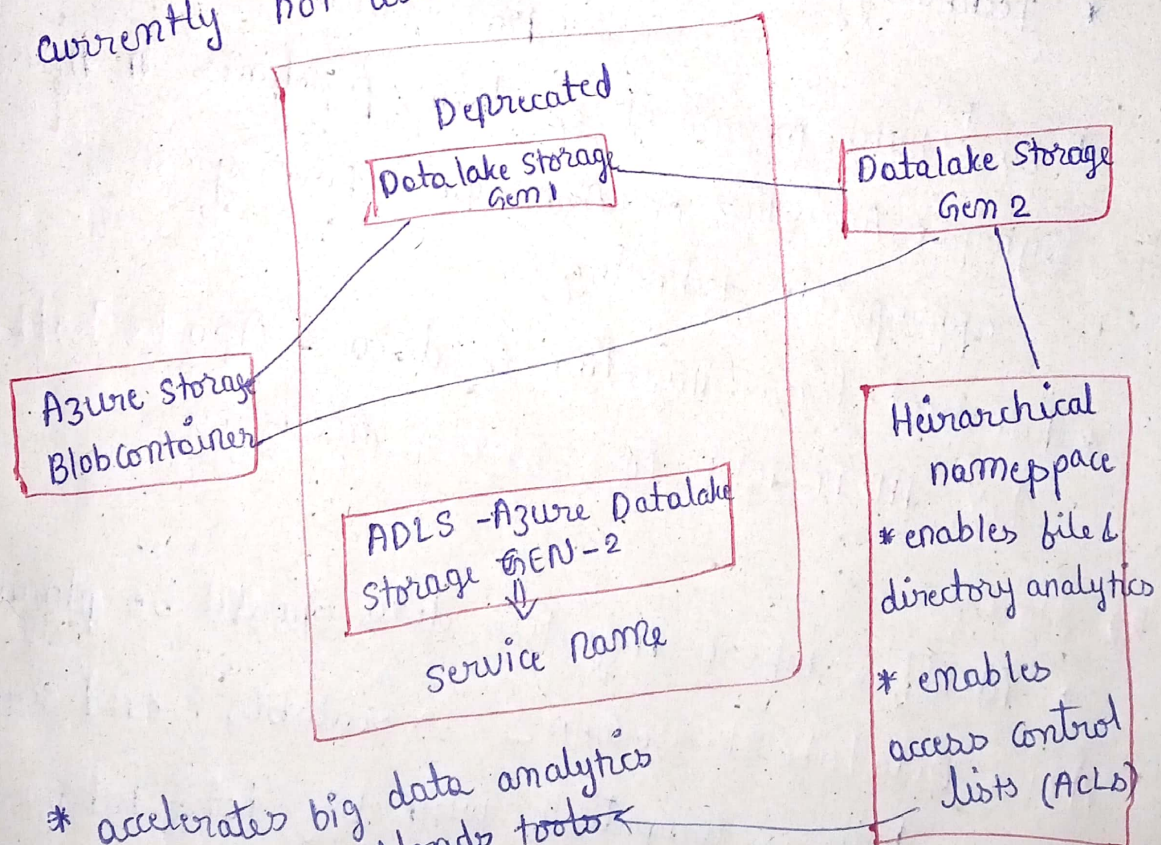 currently not
Deprecated
Datalake Storage
Gen 1
Datalake Storage
Gen 2
Azure Storage
Blob Container
ADLS - Azure Datalake
Storage GEN-2
service name
Heirarchical
nameppace
* enables file &
directory analytics
* enables
access control
lists (ACLs)
* accelerates big data analytics
tools